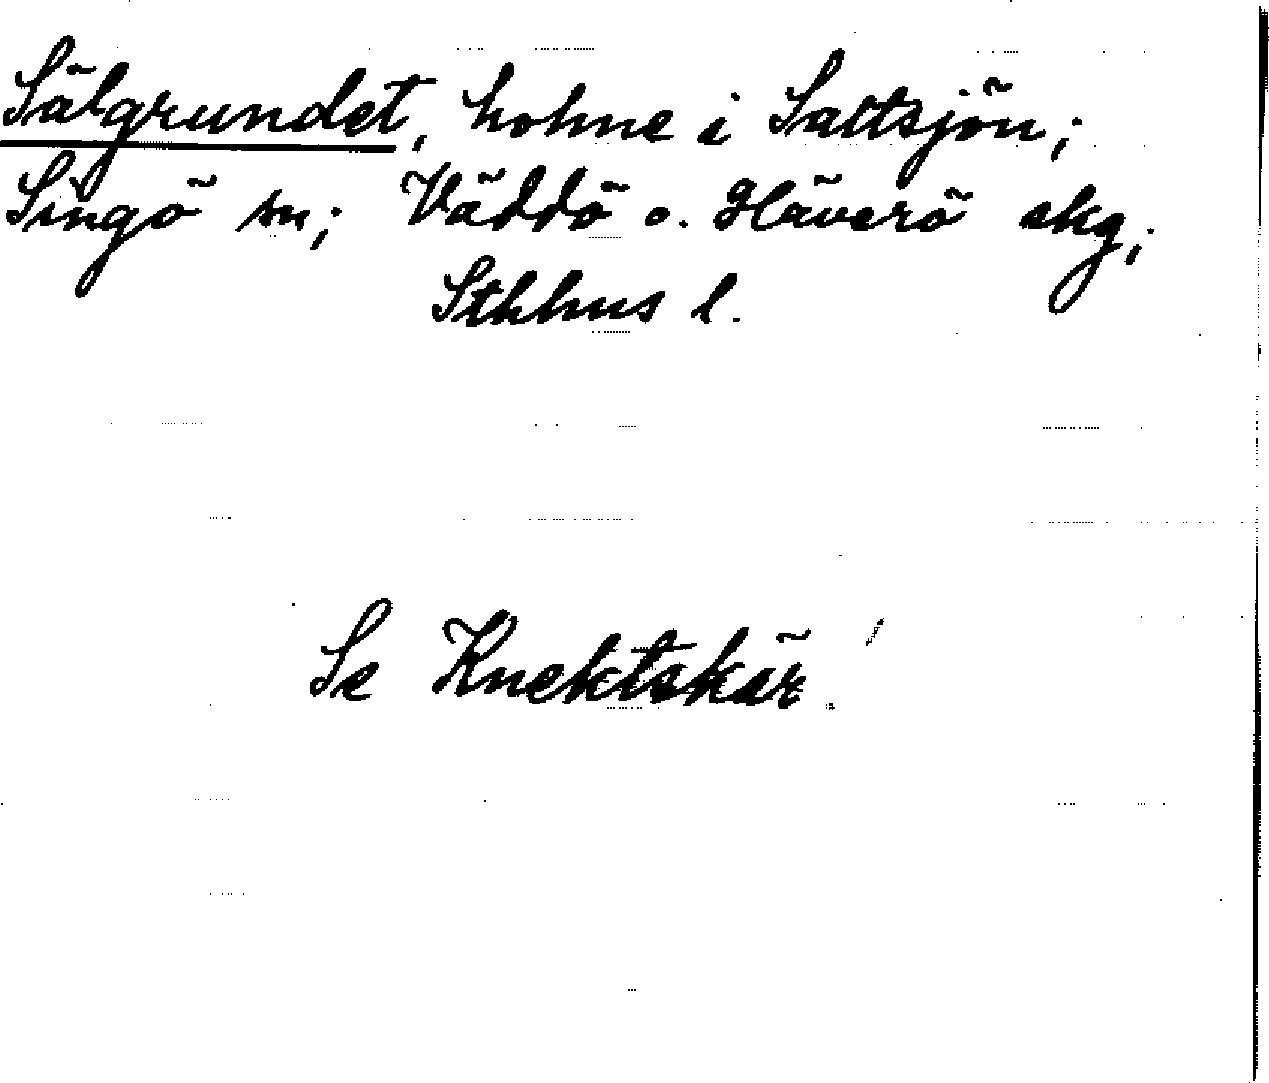 Sälgrundet, holme i Saltsjön;
Singö sn; Väddö o. Häverö skg;
Sthlms l.
Se Knektskär.